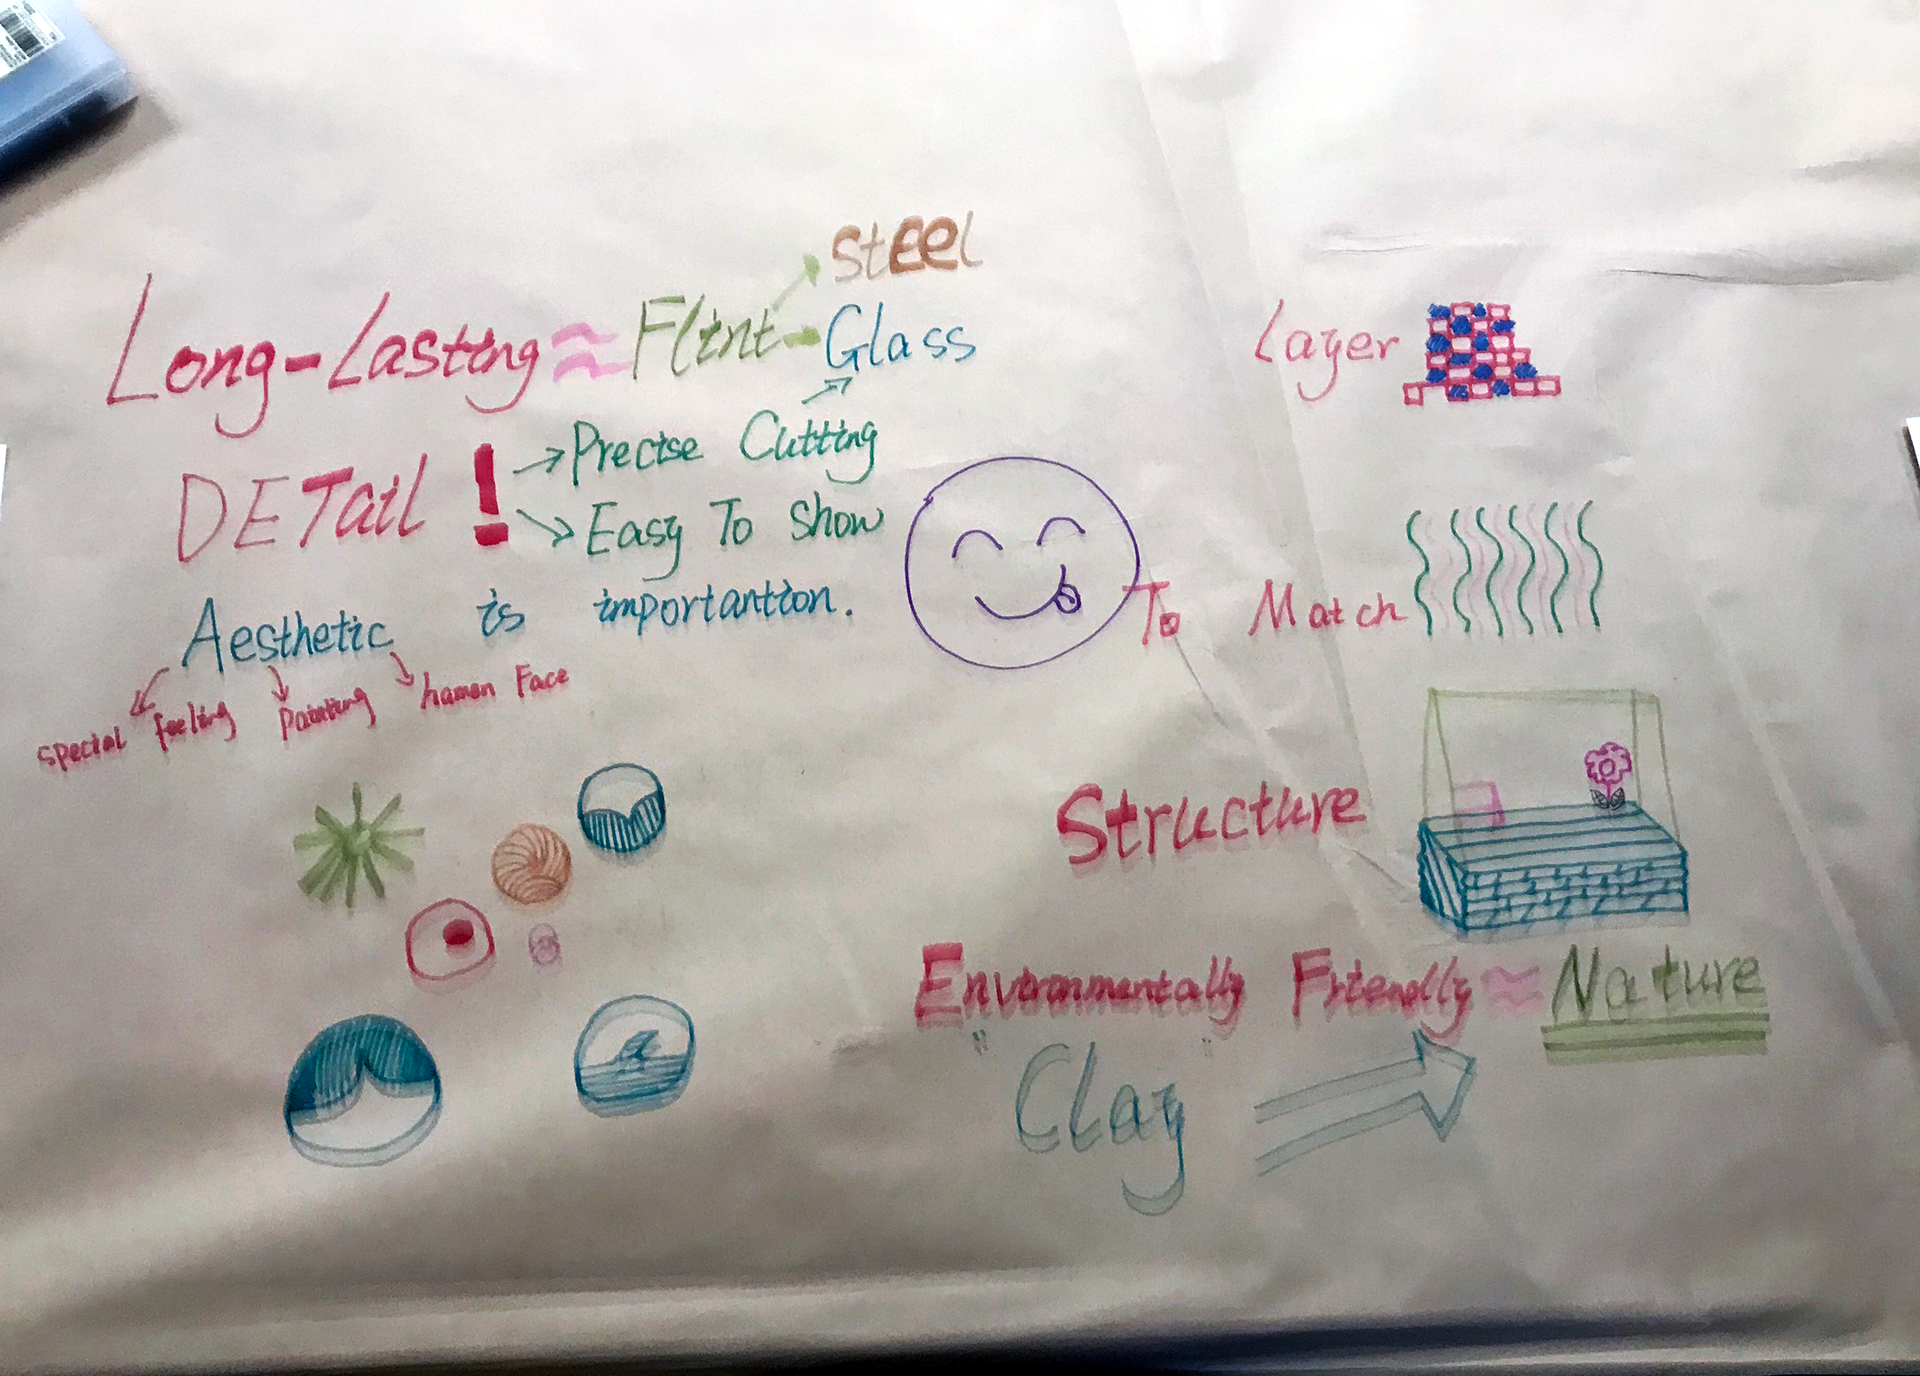 StEEl
Long-Lasting ≈ Flint-Glass
DETail ! → Precise Cutting
→ Easy To Show
Aesthetic is importantion.
special feeling
Painting
haman Face
Layer
To Match
Structure
Environmentally Friendly ≈ Nature
"Clay"